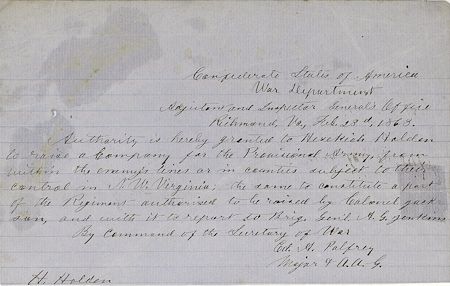 Confederate States of America
War Department
Adjutant and Inspector Generals Office
Richmond, Va, Feb. 23d, 1863.
Authority is hereby granted to Hezekiah Holden
to raise a Company for the Provisional Army, from
within the enemy's lines or in counties subject to their
control in N.W. Virginia; the same to constitute a part
of the Regiment authorised to be raised by Colonel Jack
son, and with it to report to Brig. Genl. A.G. Jenkins
By Command of the Secretary of War
Ed. A. Palfrey
Major & A.A.G.
H. Holden